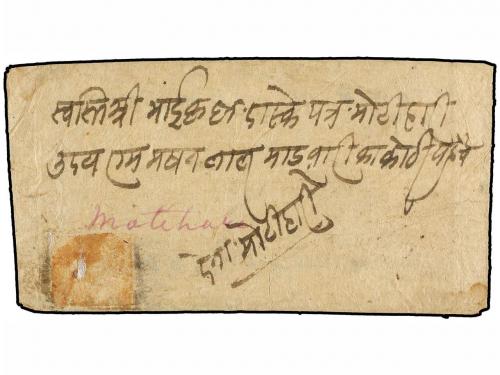 स्वस्ति श्री भाई के पत्र मोतीहारी
उदय राम मखन लाल माडवारी का कोठी पहुंचे
Motihari
मोतीहारी